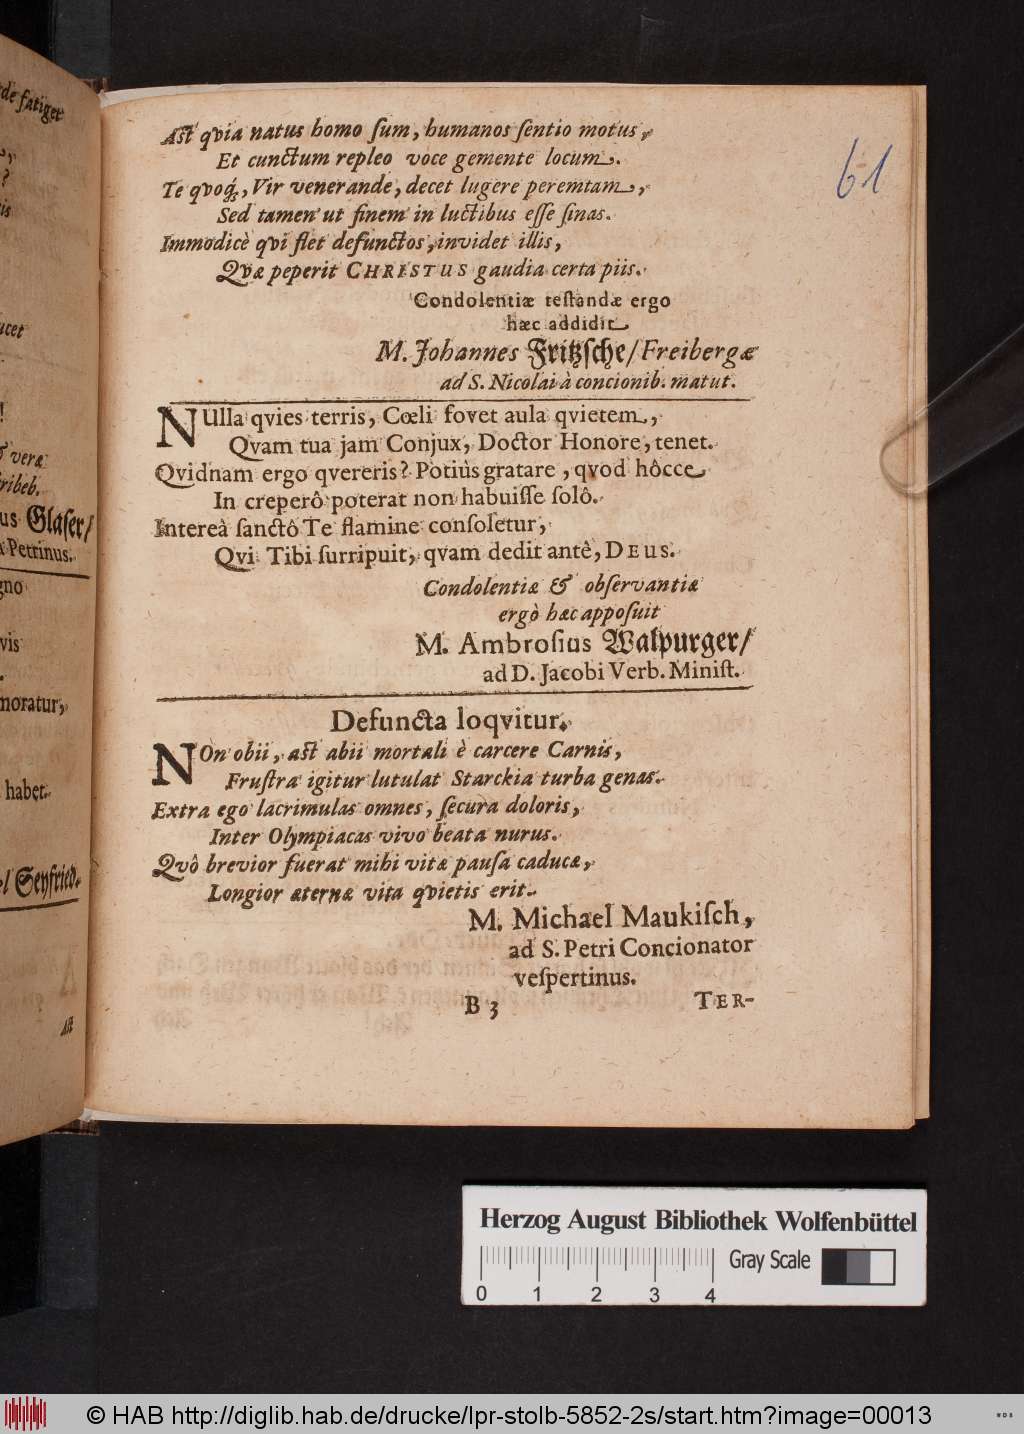 de fatiget
?
ucet
!
& veræ
ribeb.
us Glaser/
Pettinus.
gno
vis
moratur,
habet.
l Seyfried.
Ast
Ast qvia natus homo ſum, humanos ſentio motus,
Et cunctum repleo voce gemente locum.
Te qvoq́;, Vir venerande, decet lugere peremtam,
Sed tamen ut finem in luctibus eſſe ſinas.
Immodicè qvi flet defunctos, invidet illis,
Qvæ peperit CHRISTUS gaudia certa piis.
Condolentiæ teſtandæ ergo
hæc addidit
M. Johannes Fritzſche/ Freibergæ
ad S. Nicolai à concionib. matut.
NUlla qvies terris, Cœli fovet aula qvietem,
Qvam tua jam Conjux, Doctor Honore, tenet.
Qvidnam ergo qvereris? Potiùs gratare, qvod hôcce
In creperô poterat non habuiſſe ſolô.
Intereà ſanctô Te flamine conſoletur,
Qvi Tibi ſurripuit, qvam dedit antê, DEUS.
Condolentiæ & obſervantiæ
ergò hæc appoſuit
M. Ambroſius Walpurger/
ad D. Jacobi Verb. Miniſt.
Defuncta loqvitur.
NOn obii, aſt abii mortali è carcere Carnis,
Fruſtra igitur lutulat Starckia turba genas.
Extra ego lacrimulas omnes, ſecura doloris,
Inter Olympiacas vivo beata nurus.
Qvô brevior fuerat mihi vitæ pauſa caducæ,
Longior æternæ vita qvietis erit.
M. Michael Maukiſch,
ad S. Petri Concionator
veſpertinus.
B 3 TER-
61
Herzog August Bibliothek Wolfenbüttel
Gray Scale
0 1 2 3 4
© HAB http://diglib.hab.de/drucke/lpr-stolb-5852-2s/start.htm?image=00013